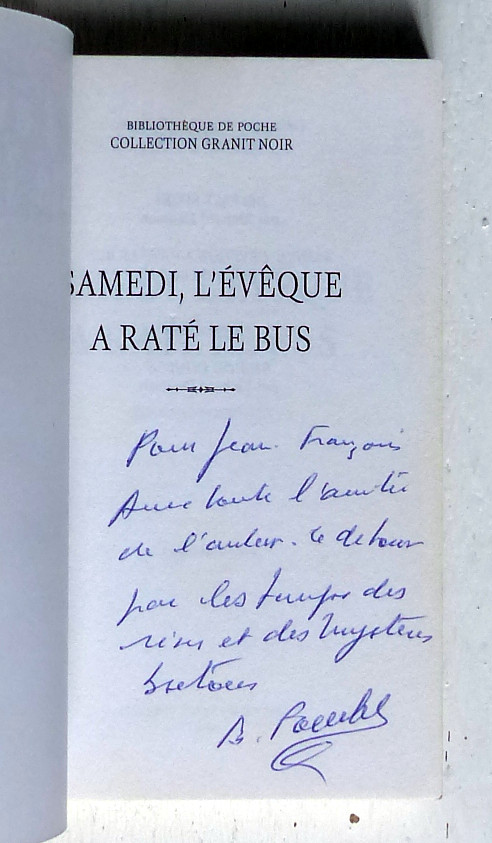 BIBLIOTHÈQUE DE POCHE
COLLECTION GRANIT NOIR
SAMEDI, L'ÉVÊQUE
A RATÉ LE BUS
Pour Jean-François
Avec toute l'amitié
de l'auteur. Le détour
par les temps des
et des mystères
bretons
B.